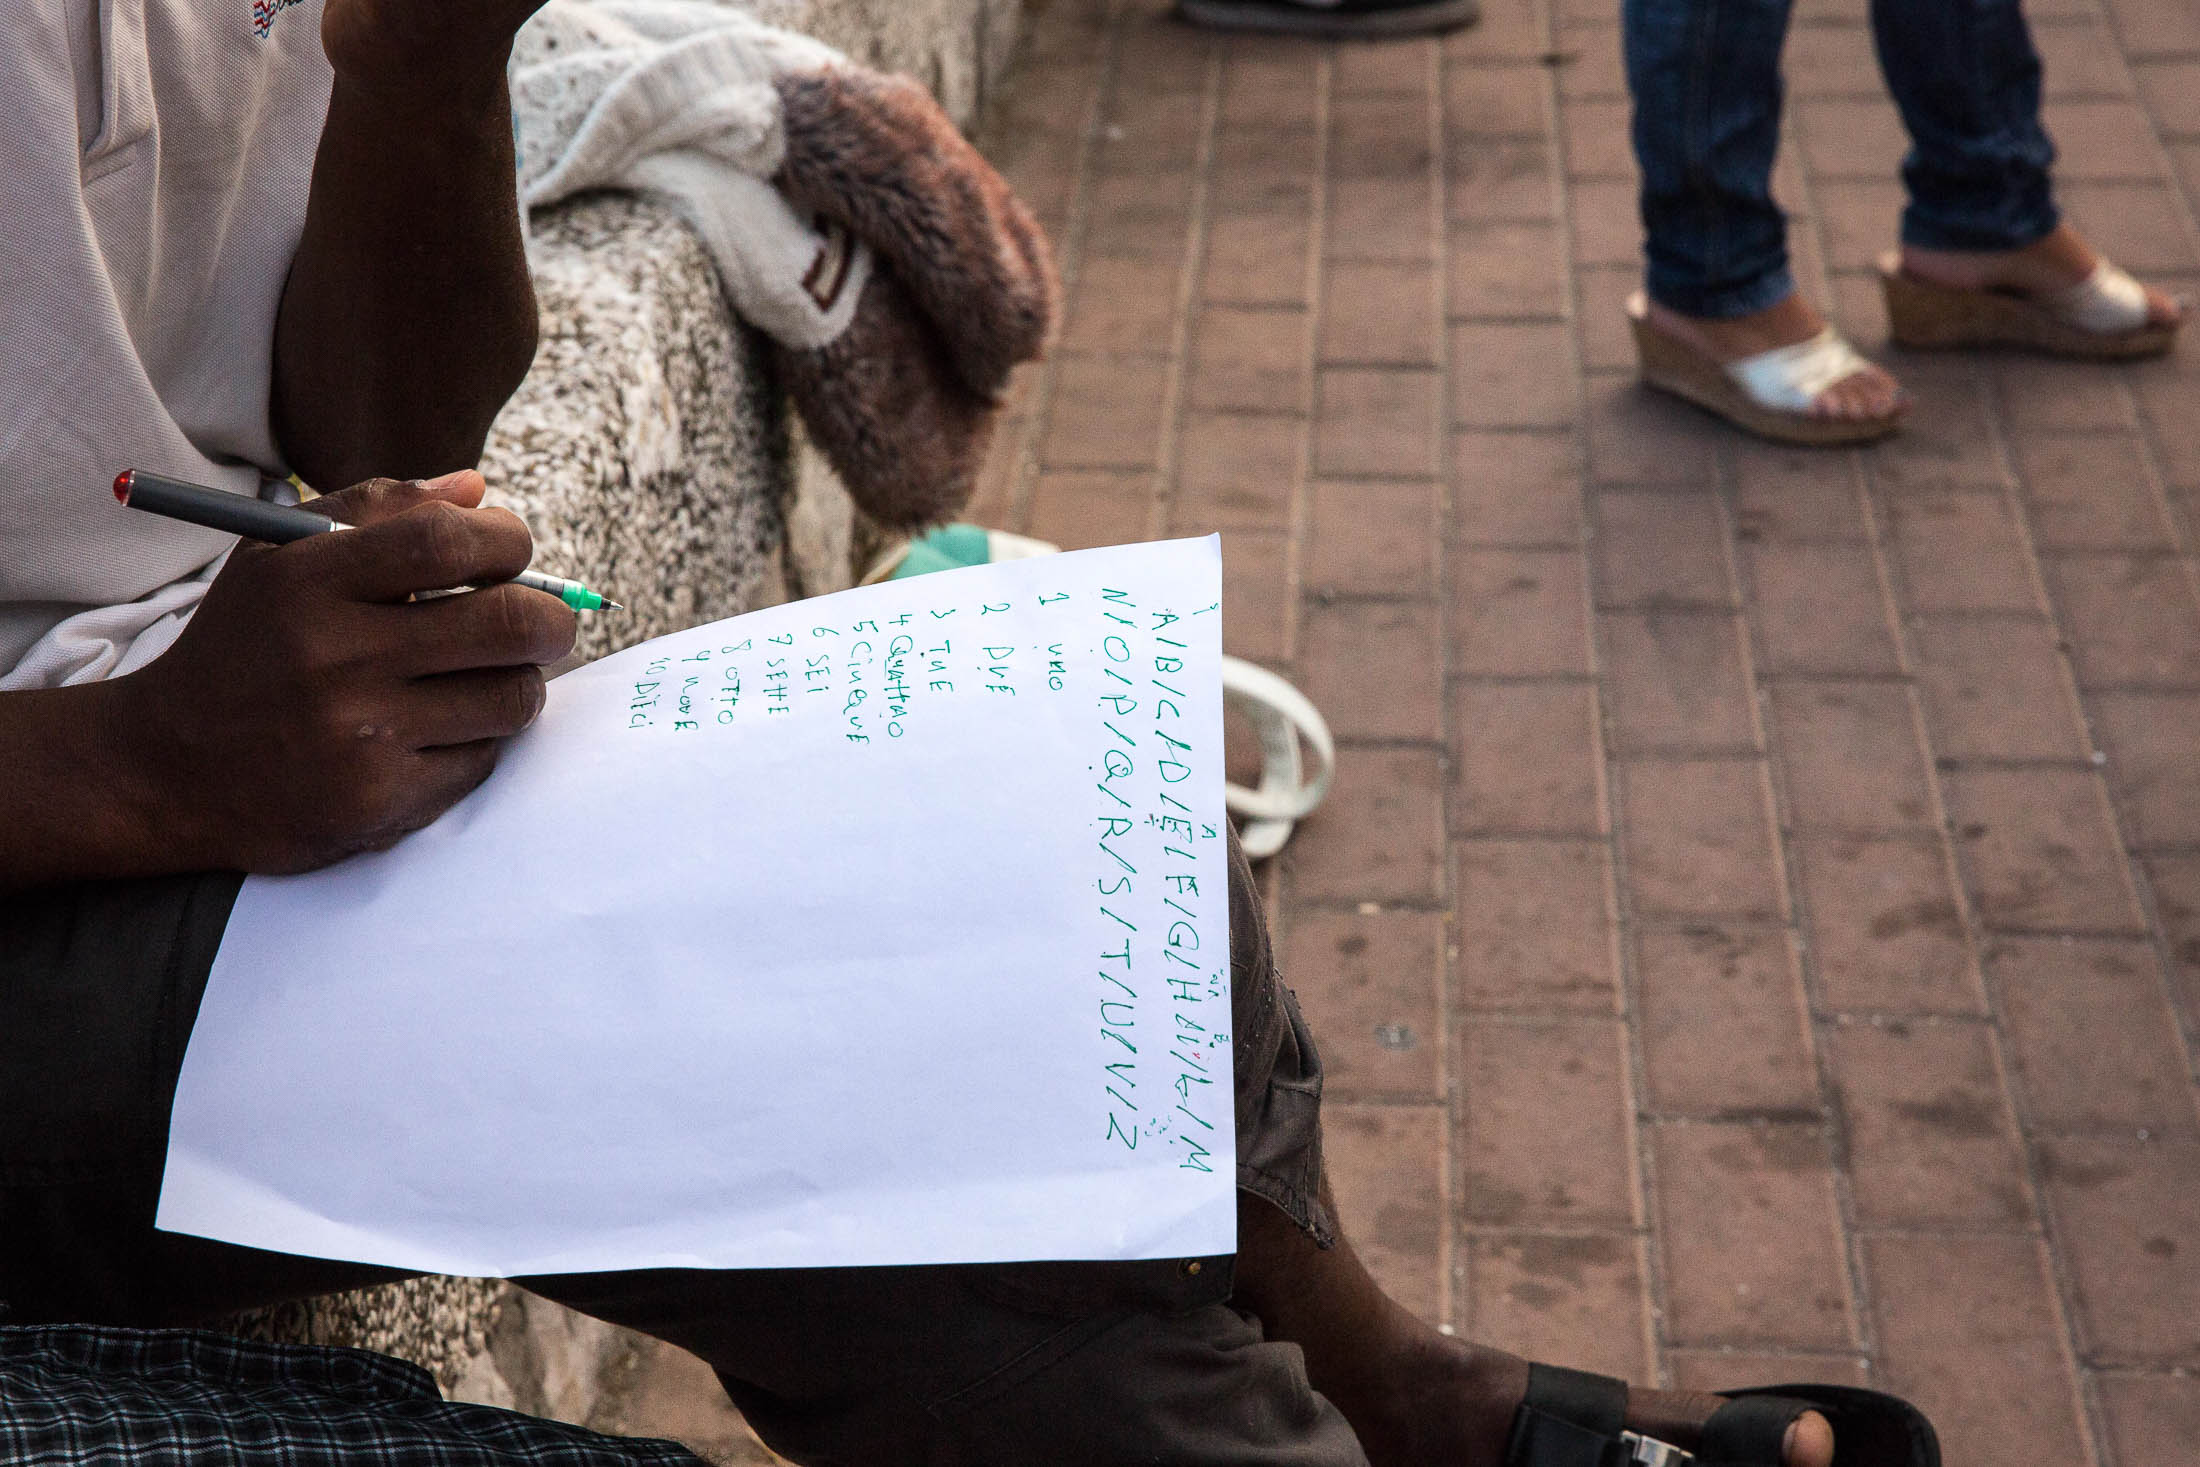 A/B/C/D/E/F/G/H/I/L/M
N/O/P/Q/R/S/T/U/V/Z
1 UNO
2 DUE
3 TRE
4 QUATTRO
5 CINQUE
6 SEI
7 SETTE
8 OTTO
9 NOVE
10 DIECI